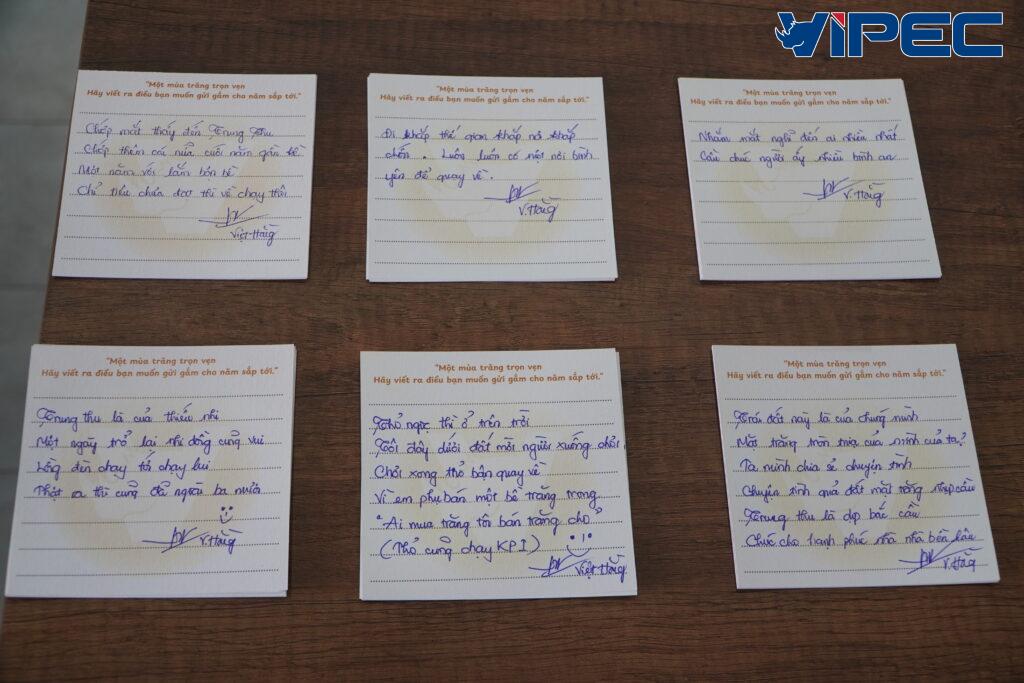 VIPEC
"Một mùa trăng trọn vẹn
Hãy viết ra điều bạn muốn gửi gắm cho năm sắp tới."
Chớp mắt thấy đến Trung Thu
Chớp thêm cái nữa cuối năm gần kề
Một năm với lắm bộn bề
Chỉ tiêu chưa đạt thì về chạy thôi
Việt Hằng
"Một mùa trăng trọn vẹn
Hãy viết ra điều bạn muốn gửi gắm cho năm sắp tới."
Đi khắp thế gian khắp nơi khắp
chốn. Luôn luôn có một nơi bình
yên để quay về.
V.Hằng
"Một mùa trăng trọn vẹn
Hãy viết ra điều bạn muốn gửi gắm cho năm sắp tới."
Nhắm mắt nghĩ đến ai nhiều nhất
Cầu chúc người ấy nhiều bình an
V.Hằng
"Một mùa trăng trọn vẹn
Hãy viết ra điều bạn muốn gửi gắm cho năm sắp tới."
Trung thu là của thiếu nhi
Một ngày trở lại nhi đồng cùng vui
Lồng đèn chạy tới chạy lui
Phật ra thì cũng đã ngoài ba mươi
V.Hằng
"Một mùa trăng trọn vẹn
Hãy viết ra điều bạn muốn gửi gắm cho năm sắp tới."
Thỏ ngọc thì ở trên trời
Tôi đây dưới đất mời người xuống chơi
Chơi xong thỏ bận quay về
Vì em phụ bán một bề trăng trong
"Ai mua trăng tôi bán trăng cho"
(Thỏ cũng chạy KPI)
Việt Hằng
"Một mùa trăng trọn vẹn
Hãy viết ra điều bạn muốn gửi gắm cho năm sắp tới."
Trái đất này là của chúng mình
Mặt trăng tròn trịa của mình của ta?
Ta mình chia sẻ chuyện tình
Chuyện tình quả đất mặt trăng
Trung thu là dịp bắc cầu
Chúc cho hạnh phúc nhà nhà bền lâu
V.Hằng